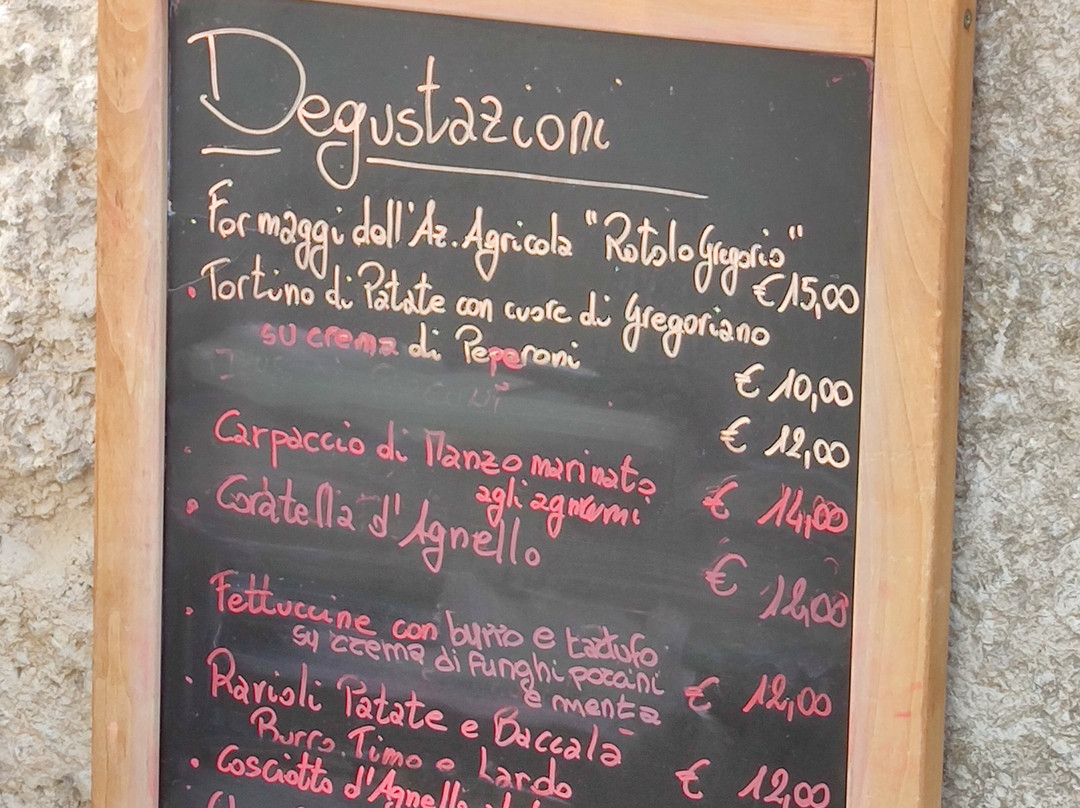 Degustazioni
Formaggi dell'Az. Agricola "Rotolo Gregorio"
€ 15,00
Tortino di Patate con cuore di Gregoriano
su crema di Peperoni
€ 10,00
€ 12,00
Carpaccio di Manzo marinato
agli agrumi
€ 14,00
Coratella d'Agnello
€ 12,00
Fettuccine con burro e tartufo
su crema di funghi porcini
e menta
€ 12,00
Ravioli Patate e Baccalà
Burro, Timo e Lardo
€ 12,00
Cosciotto d'Agnello